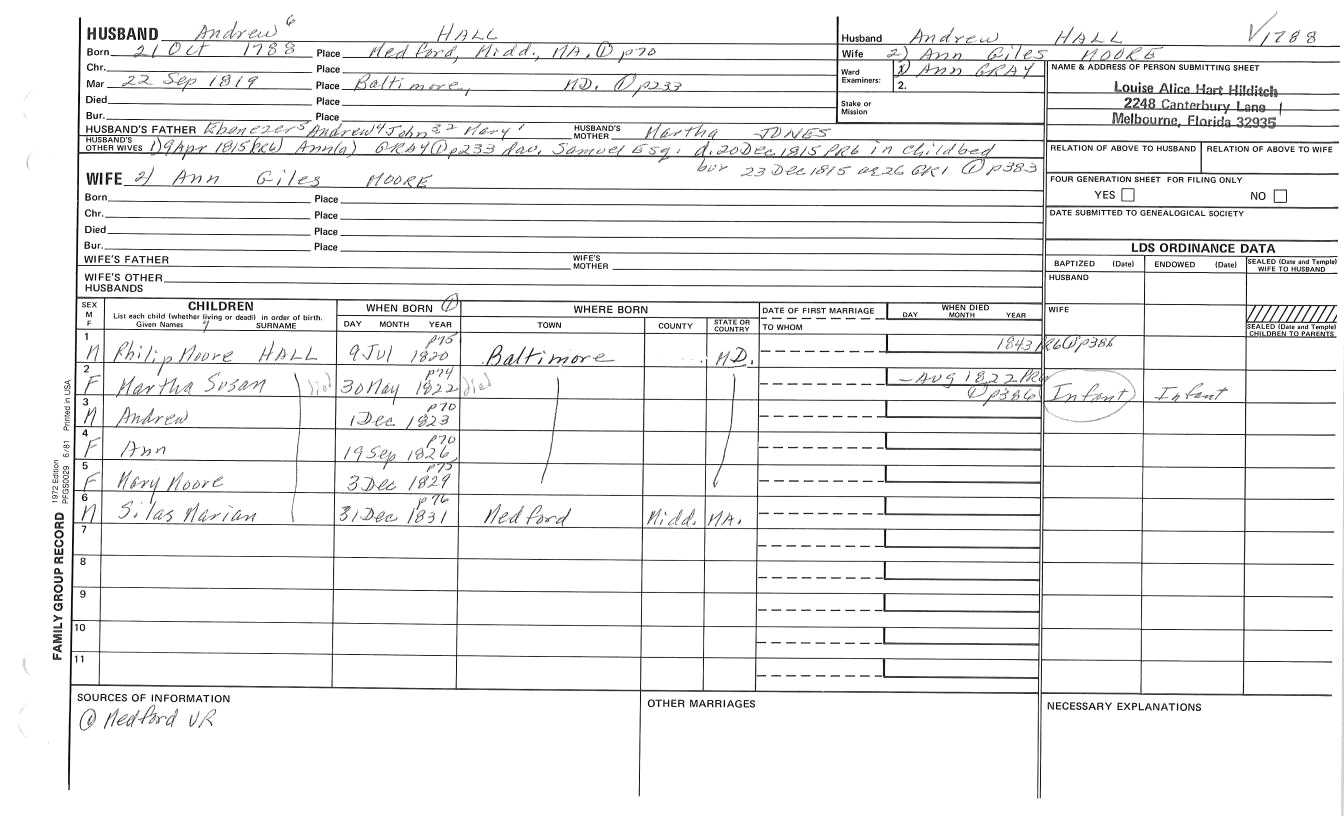 HUSBAND Andrew 6 HALL
Born 21 Oct 1788 Place Medford, Midd., MA. ① p70
Chr. Place
Mar 22 Sep 1819 Place Baltimore, MD. ① p233
Died Place
Bur. Place
HUSBAND'S FATHER Ebenezer 5 Andrew 4 John 3 2 Mary 1 HUSBAND'S MOTHER Martha JONES
HUSBAND'S OTHER WIVES 1) 9 Apr 1815 (PR6) Ann(a) GRAY ① p233 dau. Samuel Esq. d. 20 Dec 1815 PR6 in childbed
bur 23 Dec 1815 ae 26 GR1 ① p383
WIFE 2) Ann Giles MOORE
Born Place
Chr. Place
Died Place
Bur. Place
WIFE'S FATHER WIFE'S MOTHER
WIFE'S OTHER HUSBANDS
Husband Andrew HALL V1788
Wife 2) Ann Giles MOORE
Ward Examiners: 1) Ann GRAY
2.
Stake or Mission
NAME & ADDRESS OF PERSON SUBMITTING SHEET
Louise Alice Hart Hilditch
2248 Canterbury Lane
Melbourne, Florida 32935
RELATION OF ABOVE TO HUSBAND RELATION OF ABOVE TO WIFE
FOUR GENERATION SHEET FOR FILING ONLY
YES NO
DATE SUBMITTED TO GENEALOGICAL SOCIETY
LDS ORDINANCE DATA
BAPTIZED (Date) ENDOWED (Date) SEALED (Date and Temple) WIFE TO HUSBAND
HUSBAND
WIFE
SEALED (Date and Temple) CHILDREN TO PARENTS
SEX M F CHILDREN WHEN BORN ① WHERE BORN DATE OF FIRST MARRIAGE WHEN DIED
List each child (whether living or dead) in order of birth.
Given Names 7 SURNAME DAY MONTH YEAR TOWN COUNTY STATE OR COUNTRY TO WHOM DAY MONTH YEAR
1 M Philip Moore HALL 9 Jul 1820 p75 Baltimore MD. 1843 PR6 ① p386
2 F Martha Susan died 30 May 1822 p74 died – AUG 1822 PR6 ① p386 Infant Infant
3 M Andrew 1 Dec 1823 p70
4 F Ann 19 Sep 1826 p70
5 F Mary Moore 3 Dec 1829 p75
6 M Silas Marian 31 Dec 1831 p76 Medford Midd. MA.
7
8
9
10
11
SOURCES OF INFORMATION
① Medford VR
OTHER MARRIAGES
NECESSARY EXPLANATIONS
FAMILY GROUP RECORD 1972 Edition PFGS0029 6/81 Printed in USA